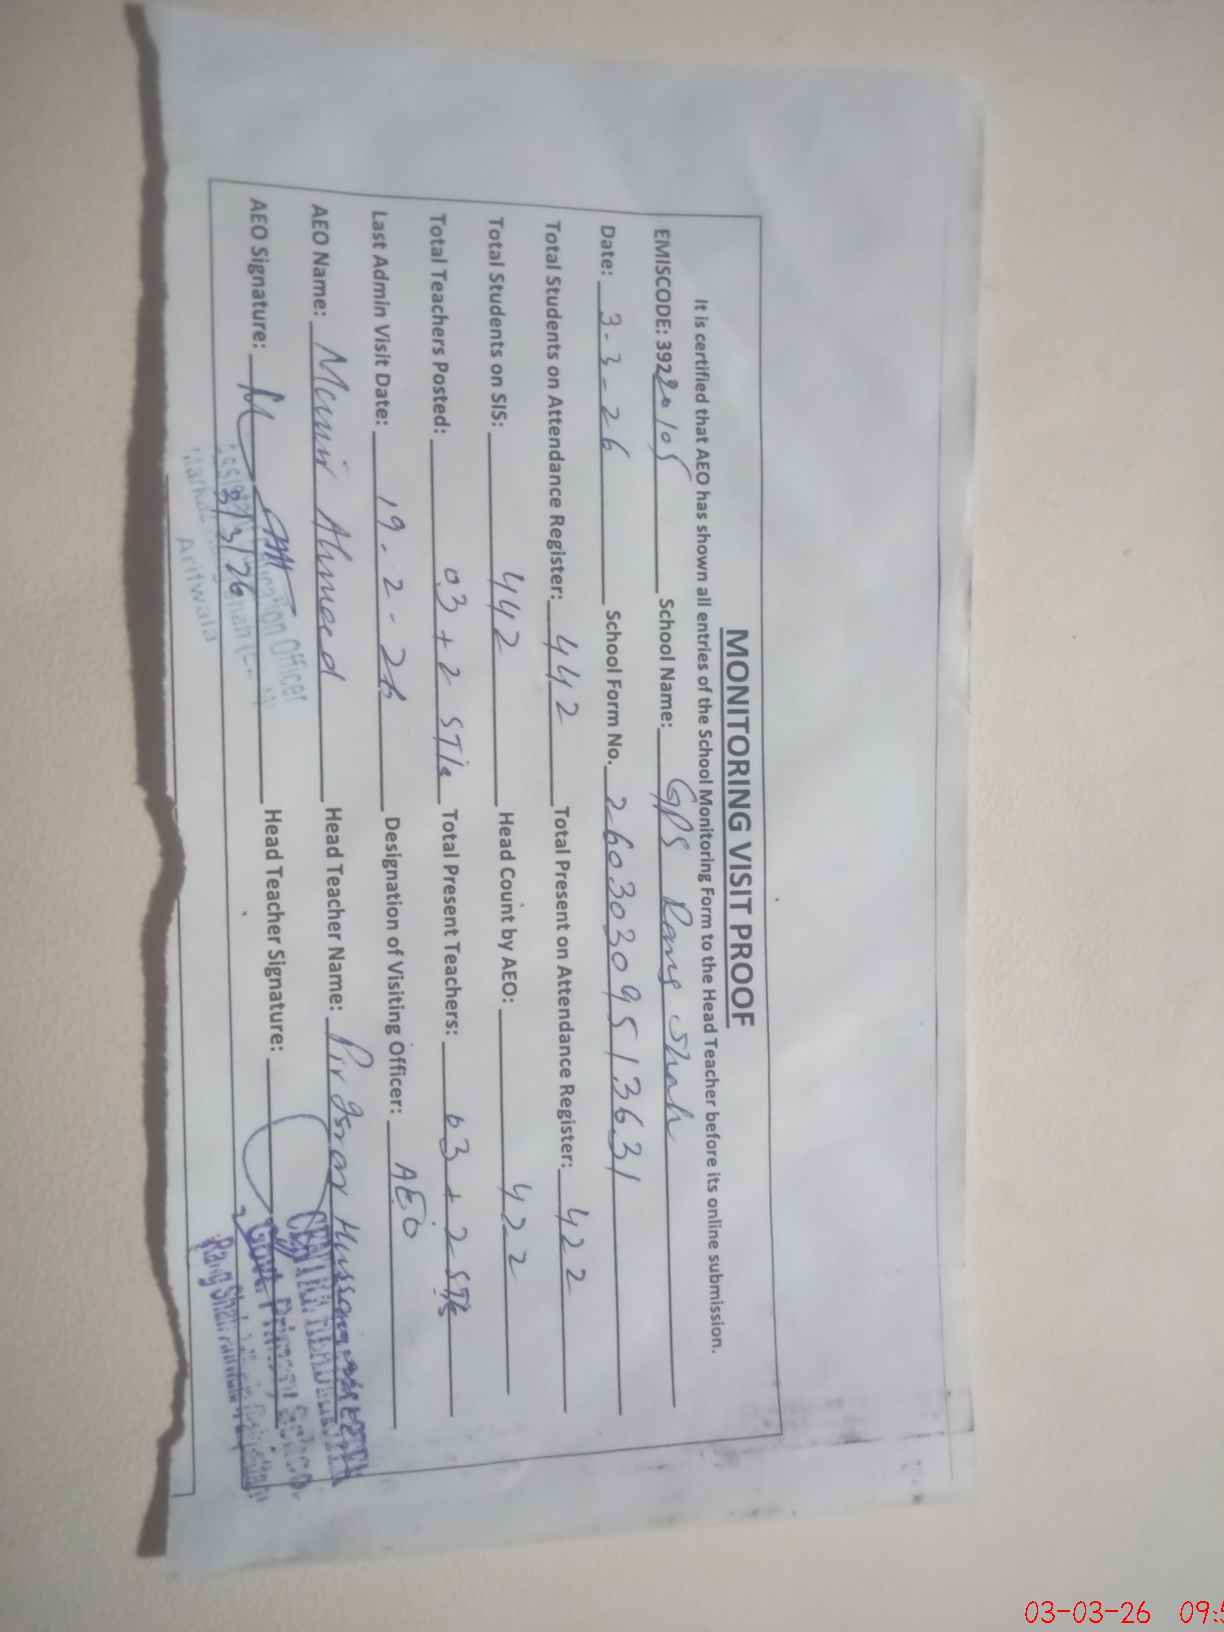 MONITORING VISIT PROOF
It is certified that AEO has shown all entries of the School Monitoring Form to the Head Teacher before its online submission.
EMISCODE: 39220105 School Name: GPS Rang Shah
Date: 3-3-26 School Form No. 26030309513631
Total Students on Attendance Register: 442 Total Present on Attendance Register: 422
Total Students on SIS: 442 Head Count by AEO: 422
Total Teachers Posted: 03 + 2 STIs Total Present Teachers: 03 + 2 STIs
Last Admin Visit Date: 19-2-26 Designation of Visiting Officer: AEO
AEO Name: Munir Ahmed Head Teacher Name: Pir
AEO Signature: Head Teacher Signature:
3/3/26
Officer
Arifwala
Govt. Primary School
Rang Shah
03-03-26 09:5